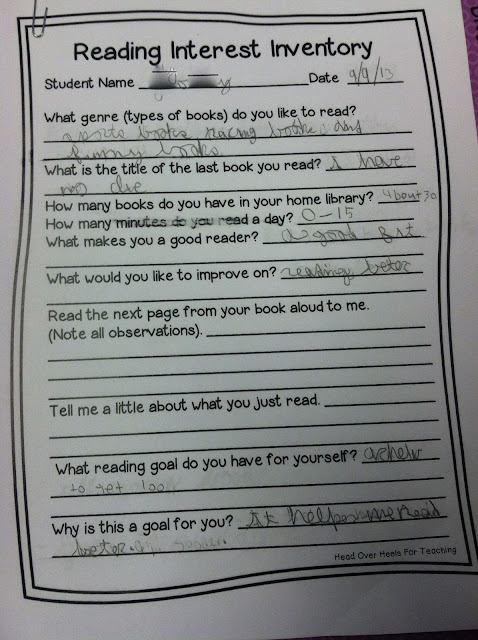 Reading Interest Inventory
Student Name Date 9/9/13
What genre (types of books) do you like to read?
sports books racing books and
funny books
What is the title of the last book you read? I have
no clue
How many books do you have in your home library? about 30
How many minutes do you read a day? 0-15
What makes you a good reader? a good fit
What would you like to improve on? reading beter
Read the next page from your book aloud to me.
(Note all observations).
Tell me a little about what you just read.
What reading goal do you have for yourself?
to get
Why is this a goal for you? It helps me read
beter
Head Over Heels For Teaching